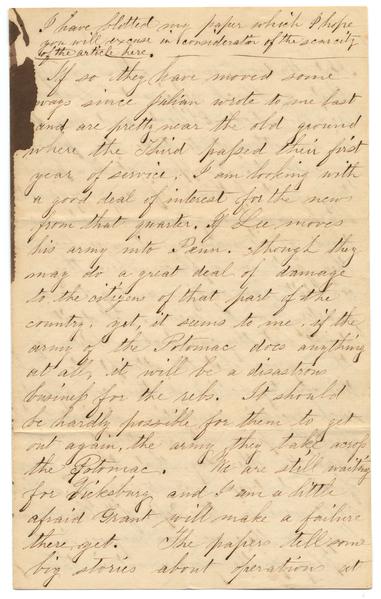 I have blotted my paper which I hope
you will excuse in consideration of the scarcity
of the article here.
If so they have moved some
ways since Julian wrote to me last
and are pretty near the old ground
where the Third passed their first
year of service. I am looking with
a good deal of interest for the news
from that quarter. If Lee moves
his army into Penn. though they
may do a great deal of damage
to the citizens of that part of the
country, yet, it seems to me, if the
army of the Potomac does anything
at all, it will be a disastrous
business for the rebs. It should
be hardly possible for them to get
out again, the army they take across
the Potomac. We are still waiting
for Vicksburg, and I am a little
afraid Grant will make a failure
there yet. The papers tell some
big stories about operations at